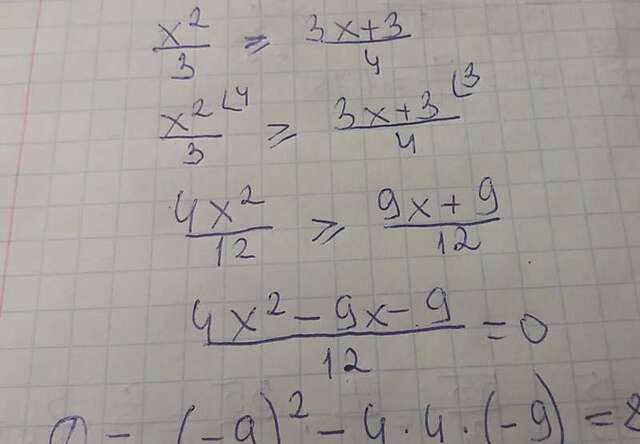 x²/3 ≥ 3x+3/4
x²⌊4/3 ≥ 3x+3⌊3/4
4x²/12 ≥ 9x+9/12
4x²-9x-9/12 = 0
(-9)²-4·4·(-9) =